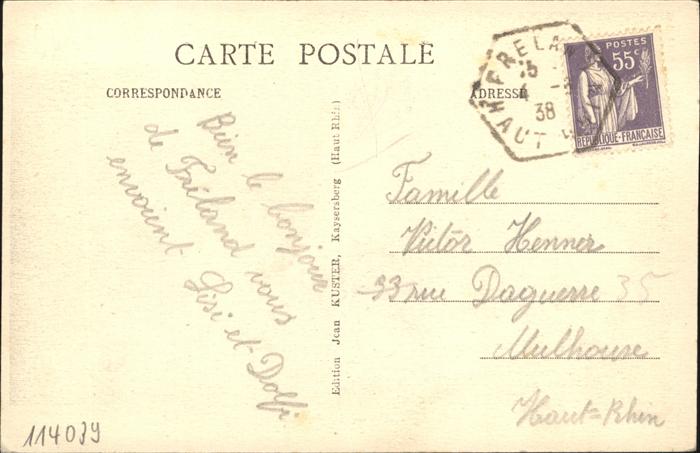 CARTE POSTALE
CORRESPONDANCE
ADRESSE
Bien le bonjour
de Fréland vous
envoient
Lisi et Dolfi
Edition Jean KUSTER, Kaysersberg (Haut Rhin)
FRELAN
38
HAUT
POSTES
55c
REPUBLIQUE-FRANÇAISE
Famille
Victor Henner
33 rue Daguerre 35
Mulhouse
Haut=Rhin
114039